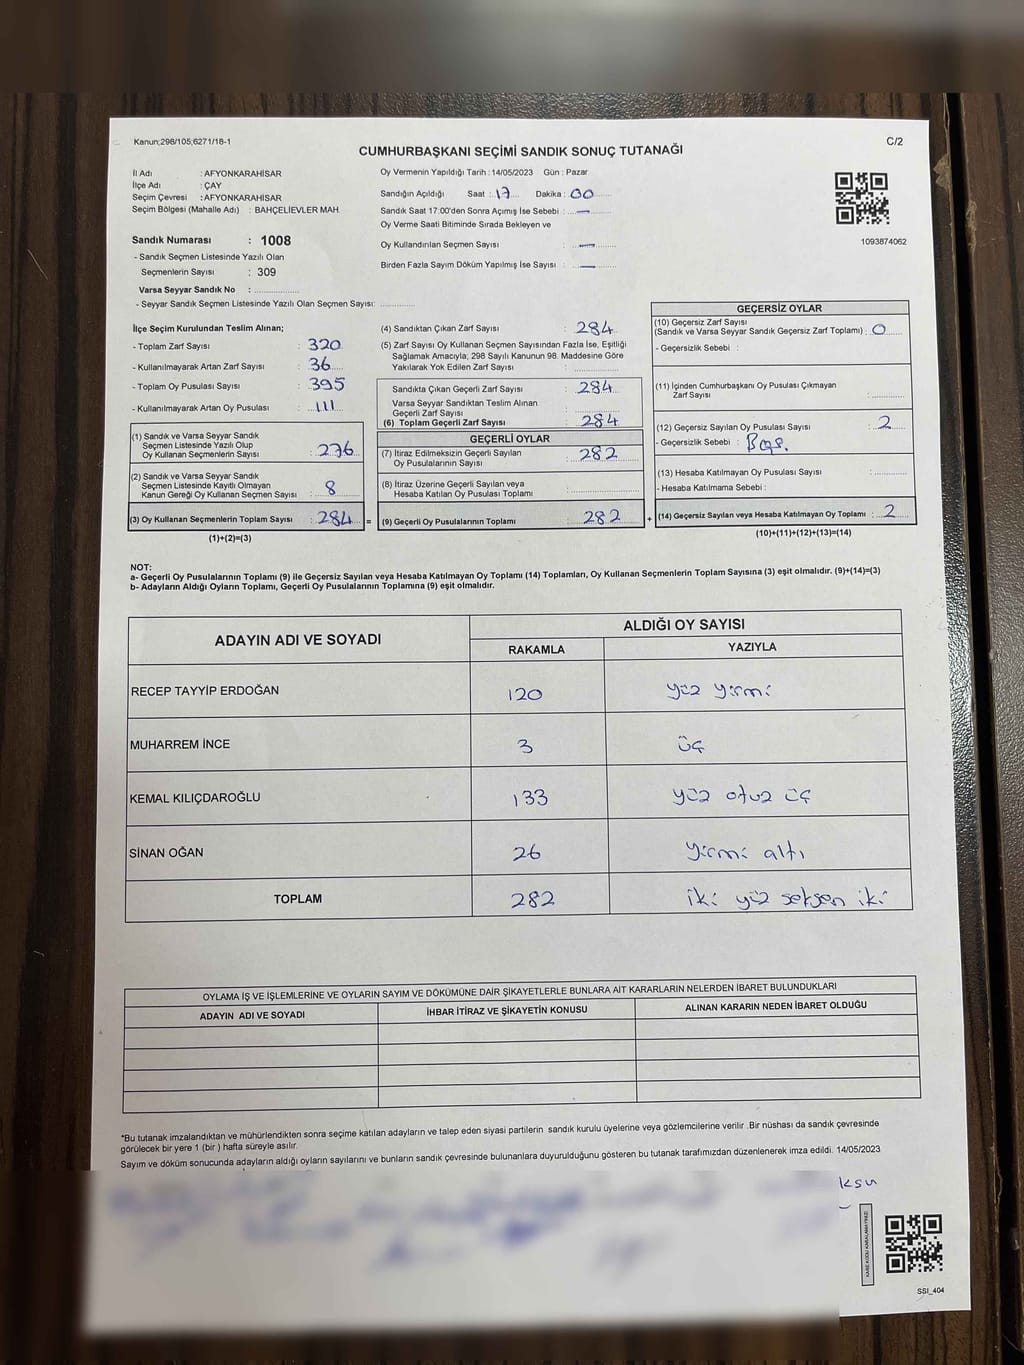 Kanun;298/105;6271/18-1
C/2
CUMHURBAŞKANI SEÇİMİ SANDIK SONUÇ TUTANAĞI
İl Adı : AFYONKARAHİSAR
İlçe Adı : ÇAY
Seçim Çevresi : AFYONKARAHİSAR
Seçim Bölgesi (Mahalle Adı) : BAHÇELİEVLER MAH.
Oy Vermenin Yapıldığı Tarih : 14/05/2023 Gün : Pazar
Sandığın Açıldığı Saat : 17 Dakika : 00
Sandık Saat 17:00'den Sonra Açımış İse Sebebi : —
Oy Verme Saati Bitiminde Sırada Bekleyen ve
Oy Kullandırılan Seçmen Sayısı : —
Birden Fazla Sayım Döküm Yapılmış İse Sayısı : —
1093874062
Sandık Numarası : 1008
- Sandık Seçmen Listesinde Yazılı Olan
Seçmenlerin Sayısı : 309
Varsa Seyyar Sandık No :
- Seyyar Sandık Seçmen Listesinde Yazılı Olan Seçmen Sayısı:
İlçe Seçim Kurulundan Teslim Alınan;
- Toplam Zarf Sayısı : 320
- Kullanılmayarak Artan Zarf Sayısı : 36
- Toplam Oy Pusulası Sayısı : 395
- Kullanılmayarak Artan Oy Pusulası : 111
(1) Sandık ve Varsa Seyyar Sandık
Seçmen Listesinde Yazılı Olup
Oy Kullanan Seçmenlerin Sayısı : 276
(2) Sandık ve Varsa Seyyar Sandık
Seçmen Listesinde Kayıtlı Olmayan
Kanun Gereği Oy Kullanan Seçmen Sayısı : 8
(3) Oy Kullanan Seçmenlerin Toplam Sayısı : 284 =
(1)+(2)=(3)
(4) Sandıktan Çıkan Zarf Sayısı : 284
(5) Zarf Sayısı Oy Kullanan Seçmen Sayısından Fazla İse, Eşitliği
Sağlamak Amacıyla; 298 Sayılı Kanunun 98. Maddesine Göre
Yakılarak Yok Edilen Zarf Sayısı :
Sandıkta Çıkan Geçerli Zarf Sayısı : 284
Varsa Seyyar Sandıktan Teslim Alınan
Geçerli Zarf Sayısı :
(6) Toplam Geçerli Zarf Sayısı : 284
GEÇERLİ OYLAR
(7) İtiraz Edilmeksizin Geçerli Sayılan
Oy Pusulalarının Sayısı : 282
(8) İtiraz Üzerine Geçerli Sayılan veya
Hesaba Katılan Oy Pusulası Toplamı :
(9) Geçerli Oy Pusulalarının Toplamı : 282 +
GEÇERSİZ OYLAR
(10) Geçersiz Zarf Sayısı
(Sandık ve Varsa Seyyar Sandık Geçersiz Zarf Toplamı) : 0
- Geçersizlik Sebebi :
(11) İçinden Cumhurbaşkanı Oy Pusulası Çıkmayan
Zarf Sayısı :
(12) Geçersiz Sayılan Oy Pusulası Sayısı : 2
- Geçersizlik Sebebi : Boş.
(13) Hesaba Katılmayan Oy Pusulası Sayısı :
- Hesaba Katılmama Sebebi :
(14) Geçersiz Sayılan veya Hesaba Katılmayan Oy Toplamı : 2
(10)+(11)+(12)+(13)=(14)
NOT:
a- Geçerli Oy Pusulalarının Toplamı (9) ile Geçersiz Sayılan veya Hesaba Katılmayan Oy Toplamı (14) Toplamları, Oy Kullanan Seçmenlerin Toplam Sayısına (3) eşit olmalıdır. (9)+(14)=(3)
b- Adayların Aldığı Oyların Toplamı, Geçerli Oy Pusulalarının Toplamına (9) eşit olmalıdır.
ADAYIN ADI VE SOYADI
ALDIĞI OY SAYISI
RAKAMLA YAZIYLA
RECEP TAYYİP ERDOĞAN 120 yüz yirmi
MUHARREM İNCE 3 üç
KEMAL KILIÇDAROĞLU 133 yüz otuz üç
SİNAN OĞAN 26 yirmi altı
TOPLAM 282 iki yüz seksen iki
OYLAMA İŞ VE İŞLEMLERİNE VE OYLARIN SAYIM VE DÖKÜMÜNE DAİR ŞİKAYETLERLE BUNLARA AİT KARARLARIN NELERDEN İBARET BULUNDUKLARI
ADAYIN ADI VE SOYADI İHBAR İTİRAZ VE ŞİKAYETİN KONUSU ALINAN KARARIN NEDEN İBARET OLDUĞU
*Bu tutanak imzalandıktan ve mühürlendikten sonra seçime katılan adayların ve talep eden siyasi partilerin sandık kurulu üyelerine veya gözlemcilerine verilir .Bir nüshası da sandık çevresinde
görülecek bir yere 1 (bir ) hafta süreyle asılır.
Sayım ve döküm sonucunda adayların aldığı oyların sayılarını ve bunların sandık çevresinde bulunanlara duyurulduğunu gösteren bu tutanak tarafımızdan düzenlenerek imza edildi. 14/05/2023
ksu
KARE KODU KARALAMAYINIZ!
SSI_404